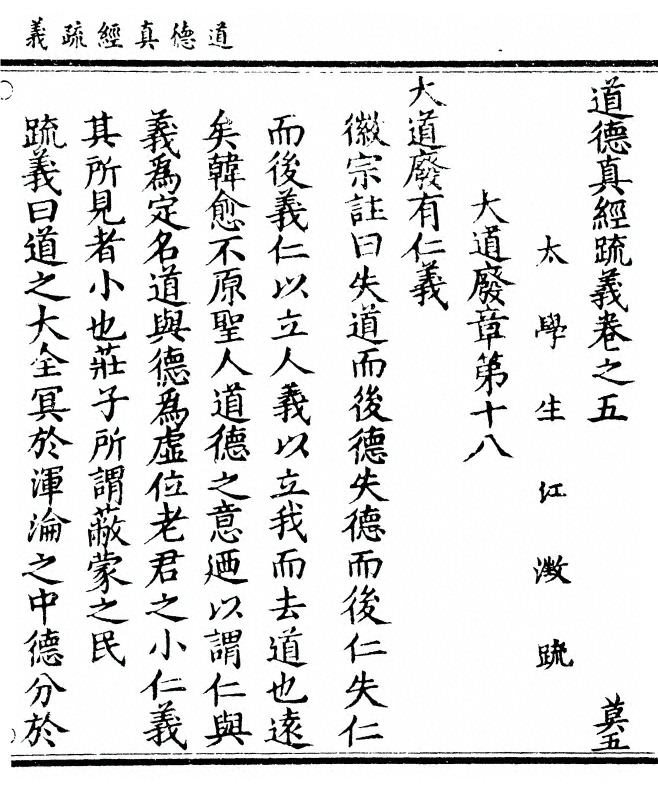 道德真經疏義
道德真經疏義卷之五
莫五
太學生江澂疏
大道廢章第十八
大道廢有仁義
徽宗註曰失道而後德失德而後仁失仁
而後義仁以立人義以立我而去道也遠
矣韓愈不原聖人道德之意廼以謂仁與
義爲定名道與德爲虛位老君之小仁義
其所見者小也莊子所謂蔽蒙之民
疏義曰道之大全冥於渾淪之中德分於